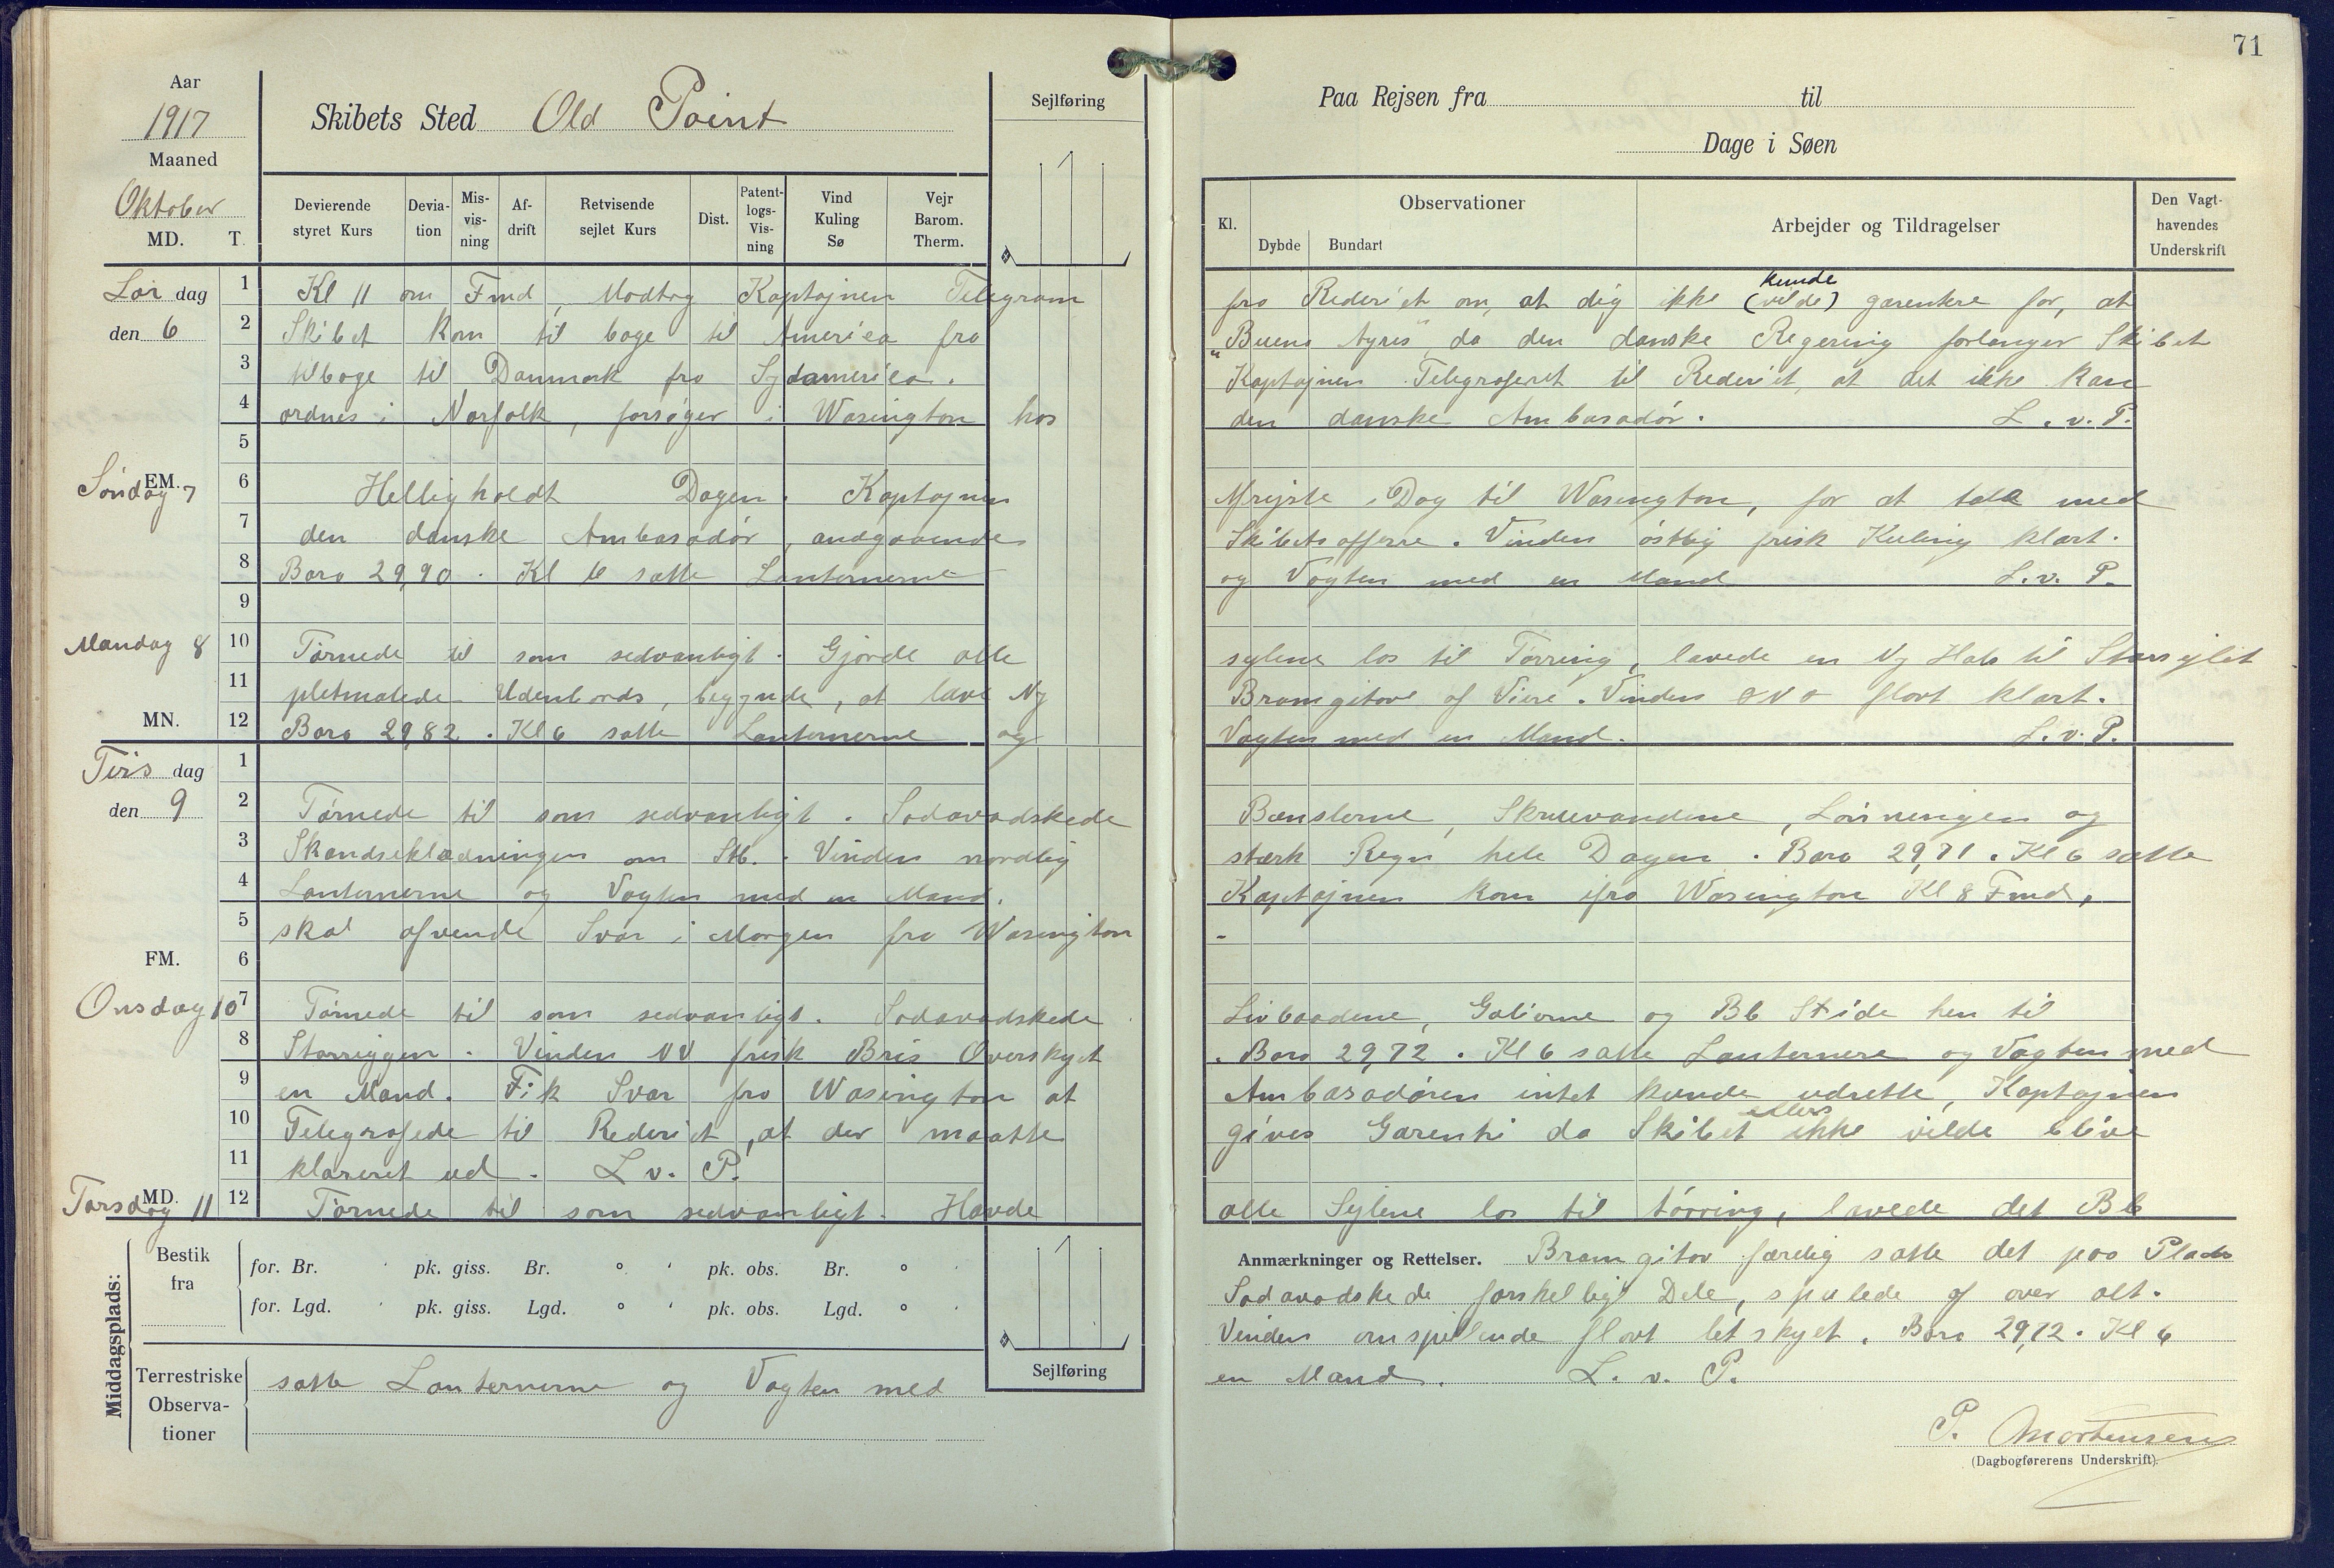 71
Aar
1917
Maaned
Oktober
MD. T.
Skibets Sted Old Point
Sejlføring
Devierende styret Kurs
Devia-tion
Mis-vis-ning
Af-drift
Retvisende sejlet Kurs
Dist.
Patent-logs-Vis-ning
Vind Kuling Sø
Vejr Barom. Therm.
Paa Rejsen fra til
Dage i Søen
Kl.
Observationer
Dybde Bundart
Arbejder og Tildragelser
Den Vagt-havendes Underskrift
Lør dag
den 6
1 Kl 11 om Fmd, Modtog Kaptajnen Telegram
fra Rederiet om, at dig ikke (vilde) kunde garentere for, at
2 Skibet kom til bage til America fra
"Buens Ayres" da den danske Regering forlanger Skibet
3 tilbage til Danmark fra Sydamerica.
Kaptajnen Telegraferet til Rederiet, at det ikke kan
4 ordnes i Norfolk, forsøger i Wasington hos
den danske Ambasadør. L. v. P.
5
Søndag 7
EM.
6 Helligholdt Dagen. Kaptajnen
Afrejste i Dag til Wasington, for at tale med
7 den danske Ambasadør, andgaaende
Skibets affere. Vinden østlig frisk Kuling klart.
8 Baro 29,90. Kl 6 satte Lanternerne
og Vagten med en Mand L. v. P.
9
Mandag 8
10 Tørnede til som sedvanligt. Gjorde alle
sejlene los til Tørring, lavede en Ny Hals til Storsejlet
11 pletmalede Udenbords, begynde, at lave Ny
Bramgitov af Viere. Vinden ONO flovt klart.
MN.
12 Baro 29,82. Kl 6 satte Lanternerne og
Vagten med en Mand. L. v. P.
Tirs dag
den 9
1
2 Tørnede til som sedvanligt. Sodavadskede
Bænslerne, Skruevandene, Lønningen og
3 Skandseklædningen om Stb. Vinden nordlig
stærk Regn hele Dagen. Baro 29,71. Kl 6 satte
4 Lanternerne og Vagten med en Mand.
Kaptajnen kom ifra Wasington Kl 8 Fmd,
5 skal afvende Svar i Morgen fra Wasington
FM.
6
Onsdag 10
7 Tørnede til som sedvanligt. Sodavadskede
Livbaadene, Galierne og Bb Side hen til
8 Storriggen. Vinden NV frisk Bris Overskyet
. Baro 29,72. Kl 6 satte Lanternere og Vagten med
9 en Mand. Fik Svar fra Wasington at
Ambasadøren intet kunde udrette, Kaptajnen
10 Telegrafede til Rederiet, at der maatte
gives Garenti da Skibet ellers ikke vilde blive
11 klareret ud. L v. P.
MD.
Torsdag 11
12 Tørnede til som sedvanligt. Havde
alle Sejlene los til tørring, lavede det Bb
Middagsplads:
Bestik fra
for. Br. ' pk. giss. Br. ° ' pk. obs. Br. ° '
for. Lgd. ' pk. giss. Lgd. ° ' pk. obs. Lgd. ° '
Sejlføring
Terrestriske Observa-tioner
Anmærkninger og Rettelser. Bramgitov færdig satte det paa Plads
Sodavadskede forskelligt Dele, spulede af over alt.
Vinden omspillende flovt letskyet. Baro 29,72. Kl 6
satte Lanternerne og Vagten med
en Mand. L. v. P.
P. Mortensen
(Dagbogførerens Underskrift).